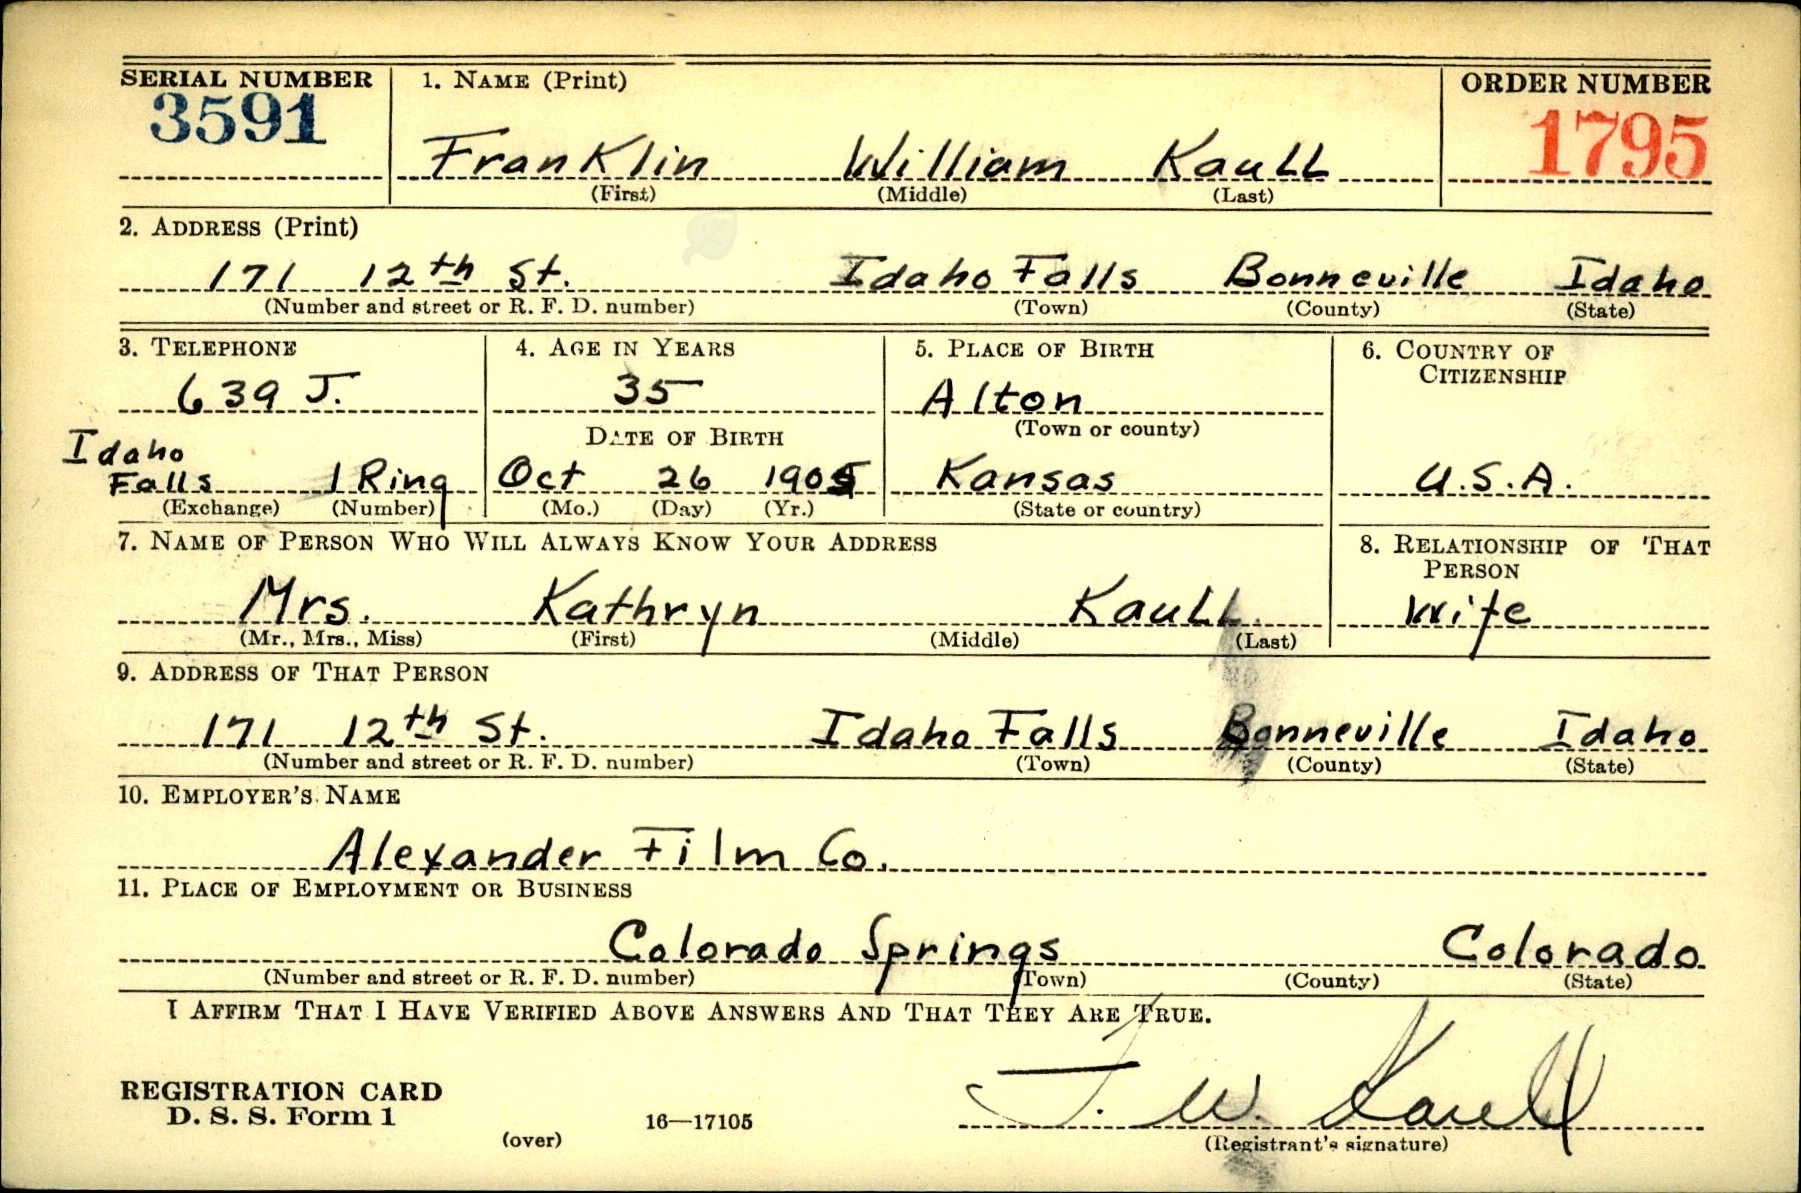 SERIAL NUMBER 1. NAME (Print) ORDER NUMBER
3591 1795
Franklin William Kaull
(First) (Middle) (Last)
2. ADDRESS (Print)
171 12th St. Idaho Falls Bonneville Idaho
(Number and street or R. F. D. number) (Town) (County) (State)
3. TELEPHONE 4. AGE IN YEARS 5. PLACE OF BIRTH 6. COUNTRY OF CITIZENSHIP
639 J. 35 Alton
(Town or county)
DATE OF BIRTH
Idaho Falls 1 Ring Oct 26 1905 Kansas U.S.A.
(Exchange) (Number) (Mo.) (Day) (Yr.) (State or country)
7. NAME OF PERSON WHO WILL ALWAYS KNOW YOUR ADDRESS 8. RELATIONSHIP OF THAT PERSON
Mrs. Kathryn Kaull. Wife
(Mr., Mrs., Miss) (First) (Middle) (Last)
9. ADDRESS OF THAT PERSON
171 12th St. Idaho Falls Bonneville Idaho
(Number and street or R. F. D. number) (Town) (County) (State)
10. EMPLOYER'S NAME
Alexander Film Co.
11. PLACE OF EMPLOYMENT OR BUSINESS
Colorado Springs Colorado
(Number and street or R. F. D. number) (Town) (County) (State)
I AFFIRM THAT I HAVE VERIFIED ABOVE ANSWERS AND THAT THEY ARE TRUE.
REGISTRATION CARD
D. S. S. Form 1 (over) 16—17105 F. W. Kaull
(Registrant's signature)